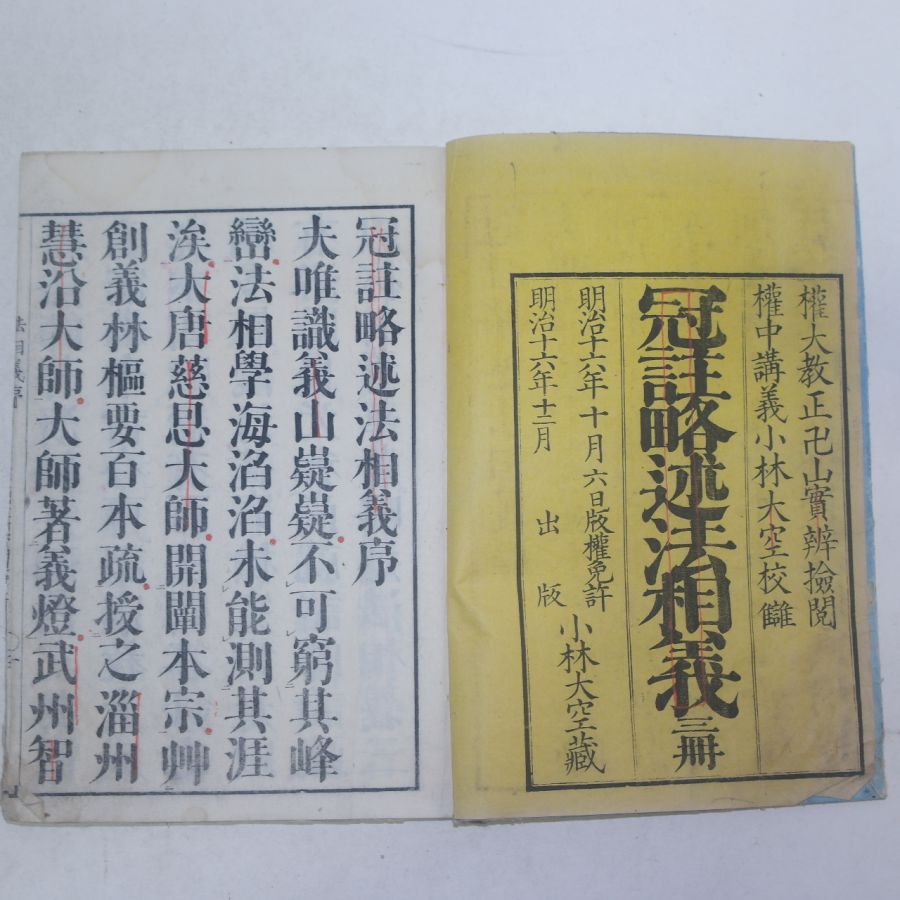 權大教正卍山實辨撿閲
權中講義小林大空校讎
冠註略述法相義三冊
明治十六年十月六日版權免許
小林大空藏
明治十六年十二月 出版
冠註略述法相義序
夫唯識義山嶷嶷不可窮其峰
巒法相學海滔滔未能測其涯
涘大唐慈恩大師開闡本宗艸
創義林樞要百本疏授之淄州
慧沿大師大師著義燈武州智
法相義序